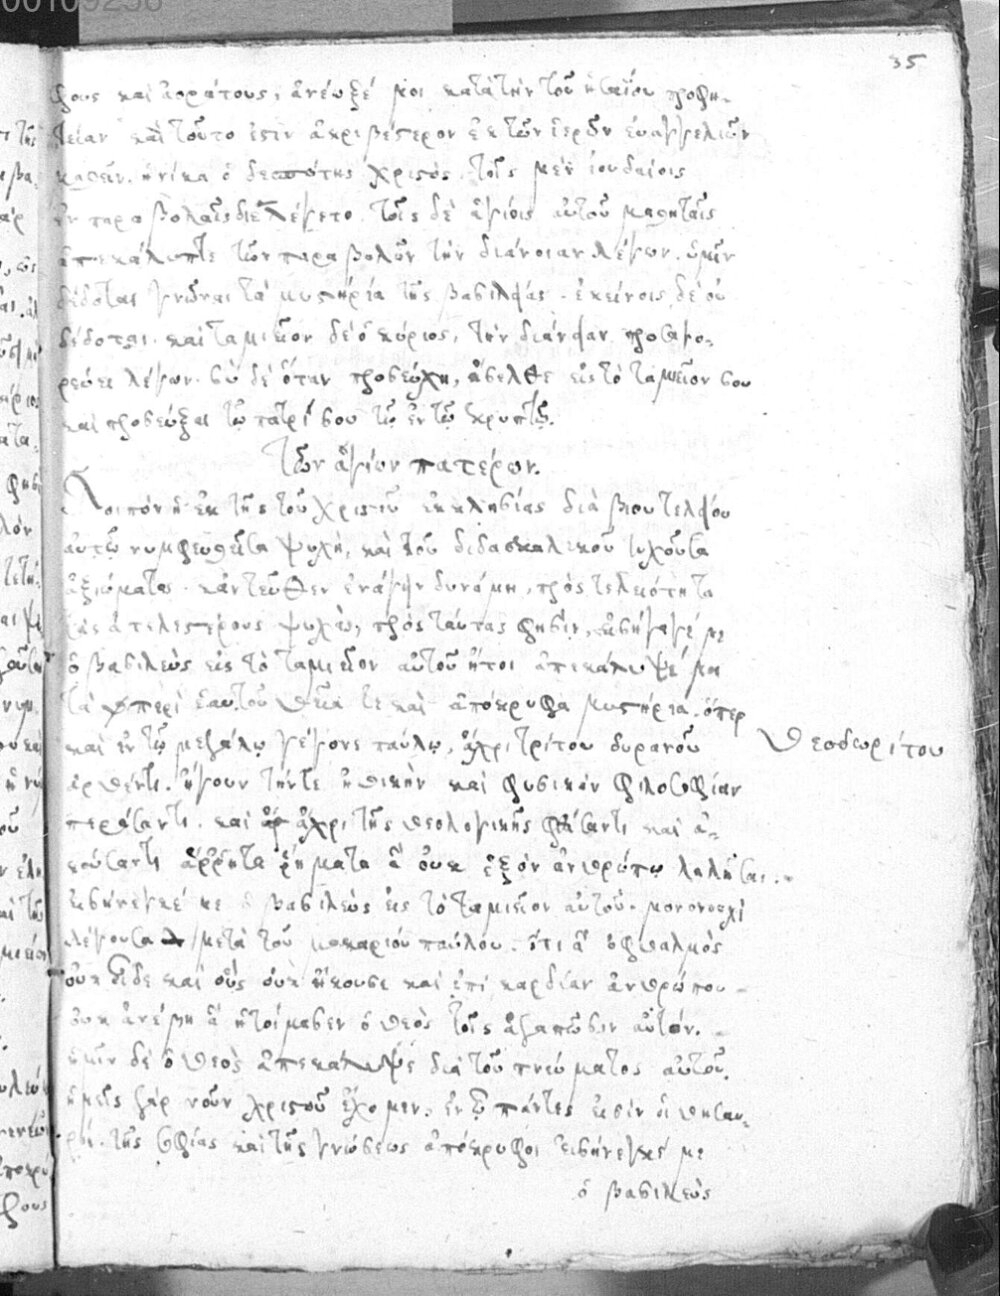 00109256
35
φους καὶ ἀοράτους, ἀνέωξέ μοι κατὰ τὴν τοῦ ἡσαΐου προφη-
τείαν καὶ τοῦτο ἐστὶν ἀκριβέστερον ἐκ τῶν ἱερῶν εὐαγγελίων
μαθεῖν. ἡνίκα ὁ δεσπότης χριστὸς. τοῖς μὲν ἰουδαίοις
ἐν παραβολαῖς διελέγετο. τοῖς δὲ ἁγίοις αὐτοῦ μαθηταῖς
ἀπεκάλυπτε τῶν παραβολῶν τὴν διάνοιαν λέγων. ὑμῖν
δέδοται γνῶναι τὰ μυστήρια τῆς βασιλείας. ἐκείνοις δὲ οὐ
δέδοται. καὶ ταμιεῖον δὲ ὁ κύριος, τὴν διάνοιαν προσαγο-
ρεύει λέγων. σὺ δὲ ὅταν προσεύχῃ, εἴσελθε εἰς τὸ ταμιεῖον σου
καὶ πρόσευξαι τῷ πατρί σου τῷ ἐν τῷ κρυπτῷ.
Τῶν ἁγίων πατέρων.
Λοιπὸν ἡ ἐκ τῆς τοῦ χριστοῦ ἐκκλησίας διὰ βίου τελείου
αὐτῷ νυμφευθεῖσα ψυχὴ, καὶ τοῦ διδασκαλικοῦ τυχοῦσα
ἀξιώματος. κἀντεῦθεν ἐνάγειν δυνάμενη, πρὸς τελειότητα
τὰς ἀτελεστέρους ψυχὰς, πρὸς ταύτας φησὶν, εἰσήγαγέ με
ὁ βασιλεὺς εἰς τὸ ταμιεῖον αὐτοῦ ἤτοι ἀπεκάλυψέ μοι
τὰ περὶ ἑαυτοῦ θεῖα τε καὶ ἀπόκρυφα μυστήρια. ὅπερ
καὶ ἐν τῷ μεγάλῳ γέγονε παύλῳ, ἄχρι τρίτου οὐρανοῦ
Θεοδωρίτου
ἀρθέντι. ἤγουν τήν τε ἠθικὴν καὶ φυσικὴν φιλοσοφίαν
περάσαντι. καὶ ἄχρι τῆς θεολογικῆς φθάσαντι καὶ ἀ-
κούσαντι ἄρρητα ῥήματα ἃ οὐκ ἐξὸν ἀνθρώπῳ λαλῆσαι.
εἰσήνεγκέ με ὁ βασιλεὺς εἰς τὸ ταμιεῖον αὐτοῦ. μονονουχὶ
λέγουσα μετὰ τοῦ μακαρίου παύλου. ὅτι ἃ ὀφθαλμὸς
οὐκ εἶδε καὶ οὖς οὐκ ἤκουσε καὶ ἐπὶ καρδίαν ἀνθρώπου
οὐκ ἀνέβη ἃ ἡτοίμασεν ὁ θεὸς τοῖς ἀγαπῶσιν αὐτόν.
ἡμῖν δὲ ὁ θεὸς ἀπεκάλυψε διὰ τοῦ πνεύματος αὐτοῦ.
ἡμεῖς γὰρ νοῦν χριστοῦ ἔχομεν. ἐν ᾧ πάντες εἰσὶν οἱ θησαυ-
ροὶ τῆς σοφίας καὶ τῆς γνώσεως ἀπόκρυφοι εἰσήνεγκέ με
ὁ βασιλεὺς